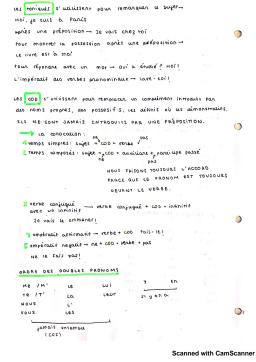 LES TONIQUES S'UTILISENT POUR REMARQUER LE SUJET→
MOI, JE SUIS À PARIS
APRÈS UNE PRÉPOSITION → JE VAIS CHEZ TOI
POUR MONTRER LA POSSESSION APRÈS UNE PRÉPOSITION→
LE LIVRE EST À MOI
POUR RÉPONDRE AVEC UN MOT → QUI A ÉTUDIÉ? MOI!
L'IMPÉRATIF DES VERBES PRONOMINAUX → LAVE-TOI!
LES COD S'UTILISENT POUR REMPLACER UN COMPLÉMENT INTRODUIT PAR
DES NOMS PROPRES, DES POSSESSIFS, DES DÉFINIS OU LES DÉMONSTRATIFS.
ILS NE SONT JAMAIS INTRODUITS PAR UNE PRÉPOSITION.
→ LA COLOCATION:
NE PAS
1 TEMPS SIMPLES: SUJET + COD + VERBE
NE PAS
2 TEMPS COMPOSÉS: SUJET + COD + AUXILIAIRE + PARTICIPE PASSÉ
NOUS FAISONS TOUJOURS L'ACCORD
PARCE QUE LE PRONOM EST TOUJOURS
DEVANT LE VERBE.
3 VERBE CONJUGUÉ AVEC UN INFINITIF → VERBE CONJUGUÉ + COD + INFINITIF
JE VAIS
4 IMPÉRATIF AFFIRMATIF → VERBE + COD FAIS-LE!
5 IMPÉRATIF NÉGATIF → NE + COD + VERBE + PAS
NE LE FAIS PAS!
ORDRE DES DOUBLES PRONOMS
ME / M' LE LUI Y EN
TE / T' LA LEUR
NOUS L'
VOUS LES
JAMAIS ENSEMBLE
Scanned with CamScanner